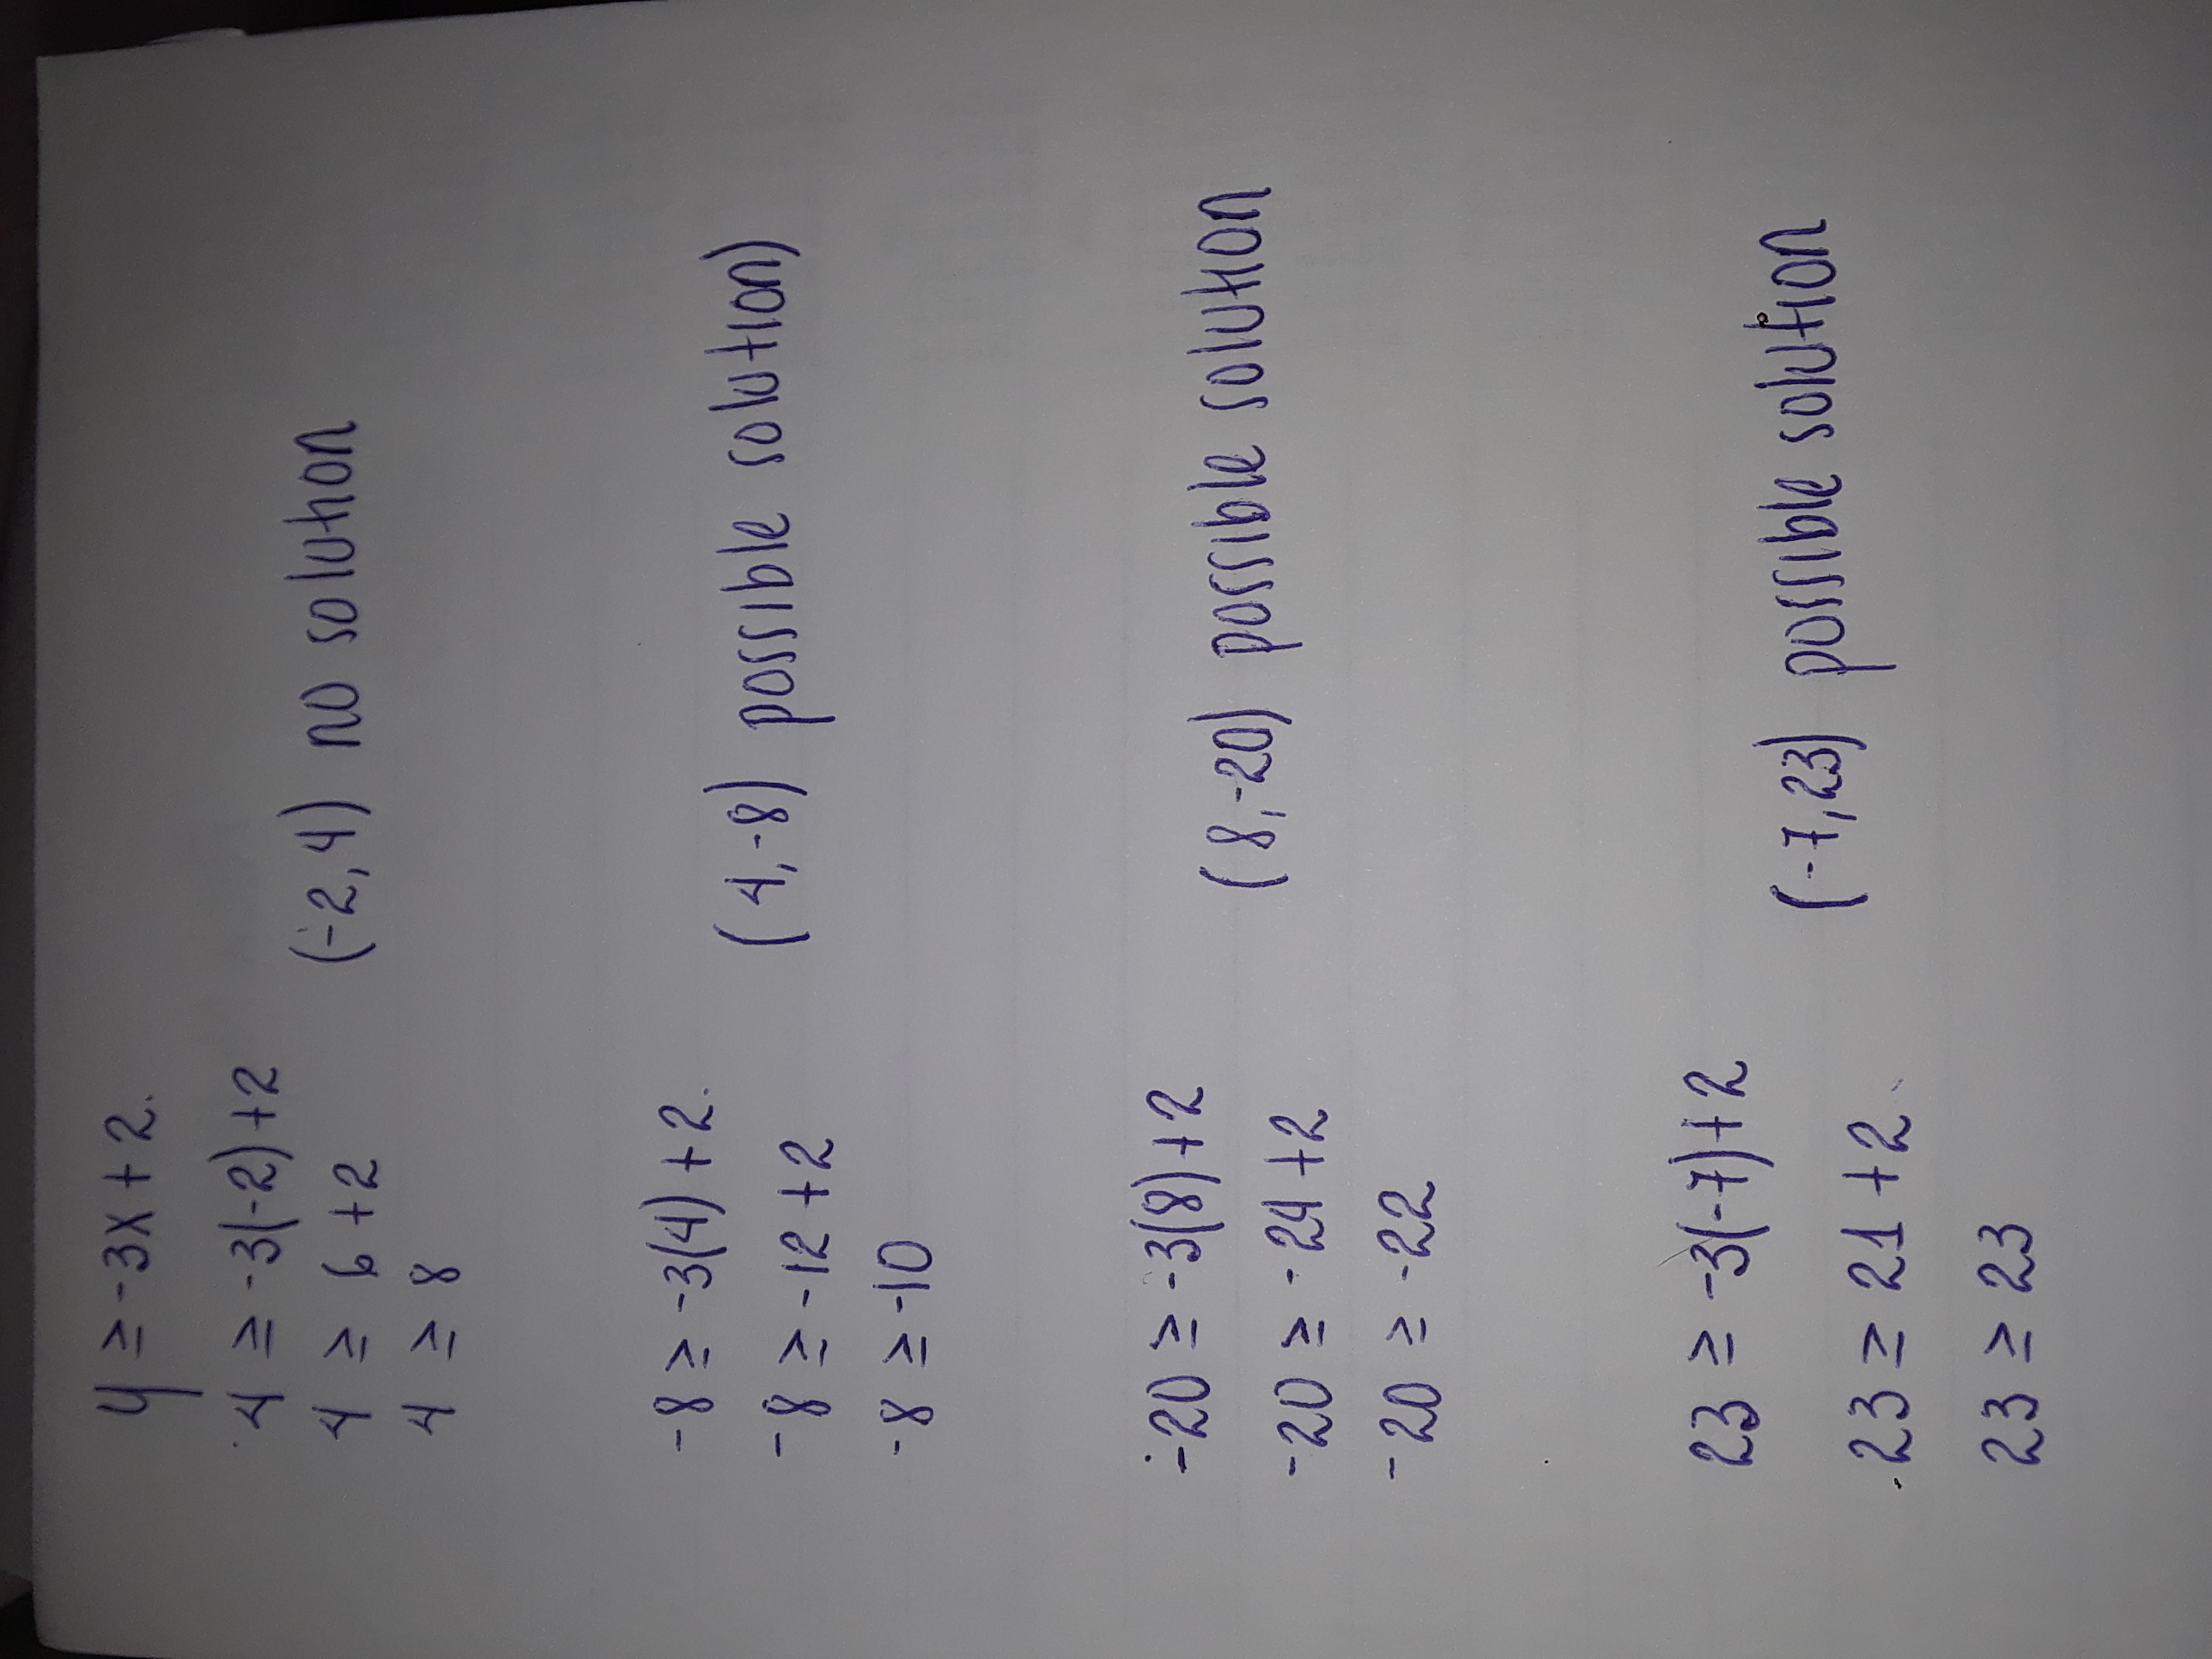 y ≥ -3x + 2.
4 ≥ -3(-2) +2
(-2, 4) no solution
4 ≥ 6 +2
4 ≥ 8
-8 ≥ -3(4) + 2.
(4, -8) possible solution)
-8 ≥ -12 +2
-8 ≥ -10
-20 ≥ -3(8) +2
(8, -20) possible solution
-20 ≥ -24 +2
-20 ≥ -22
23 ≥ -3(-7) +2
(-7, 23) possible solution
23 ≥ 21 +2.
23 ≥ 23